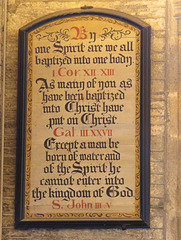 By
one Spirit are we all
baptized into one body
I Cor XII XIII
As many of you as
have been baptized
into Christ have
put on Christ
Gal III XXVII
Except a man be
born of water and
of the Spirit he
cannot enter into
the kingdom of God
S. John III V